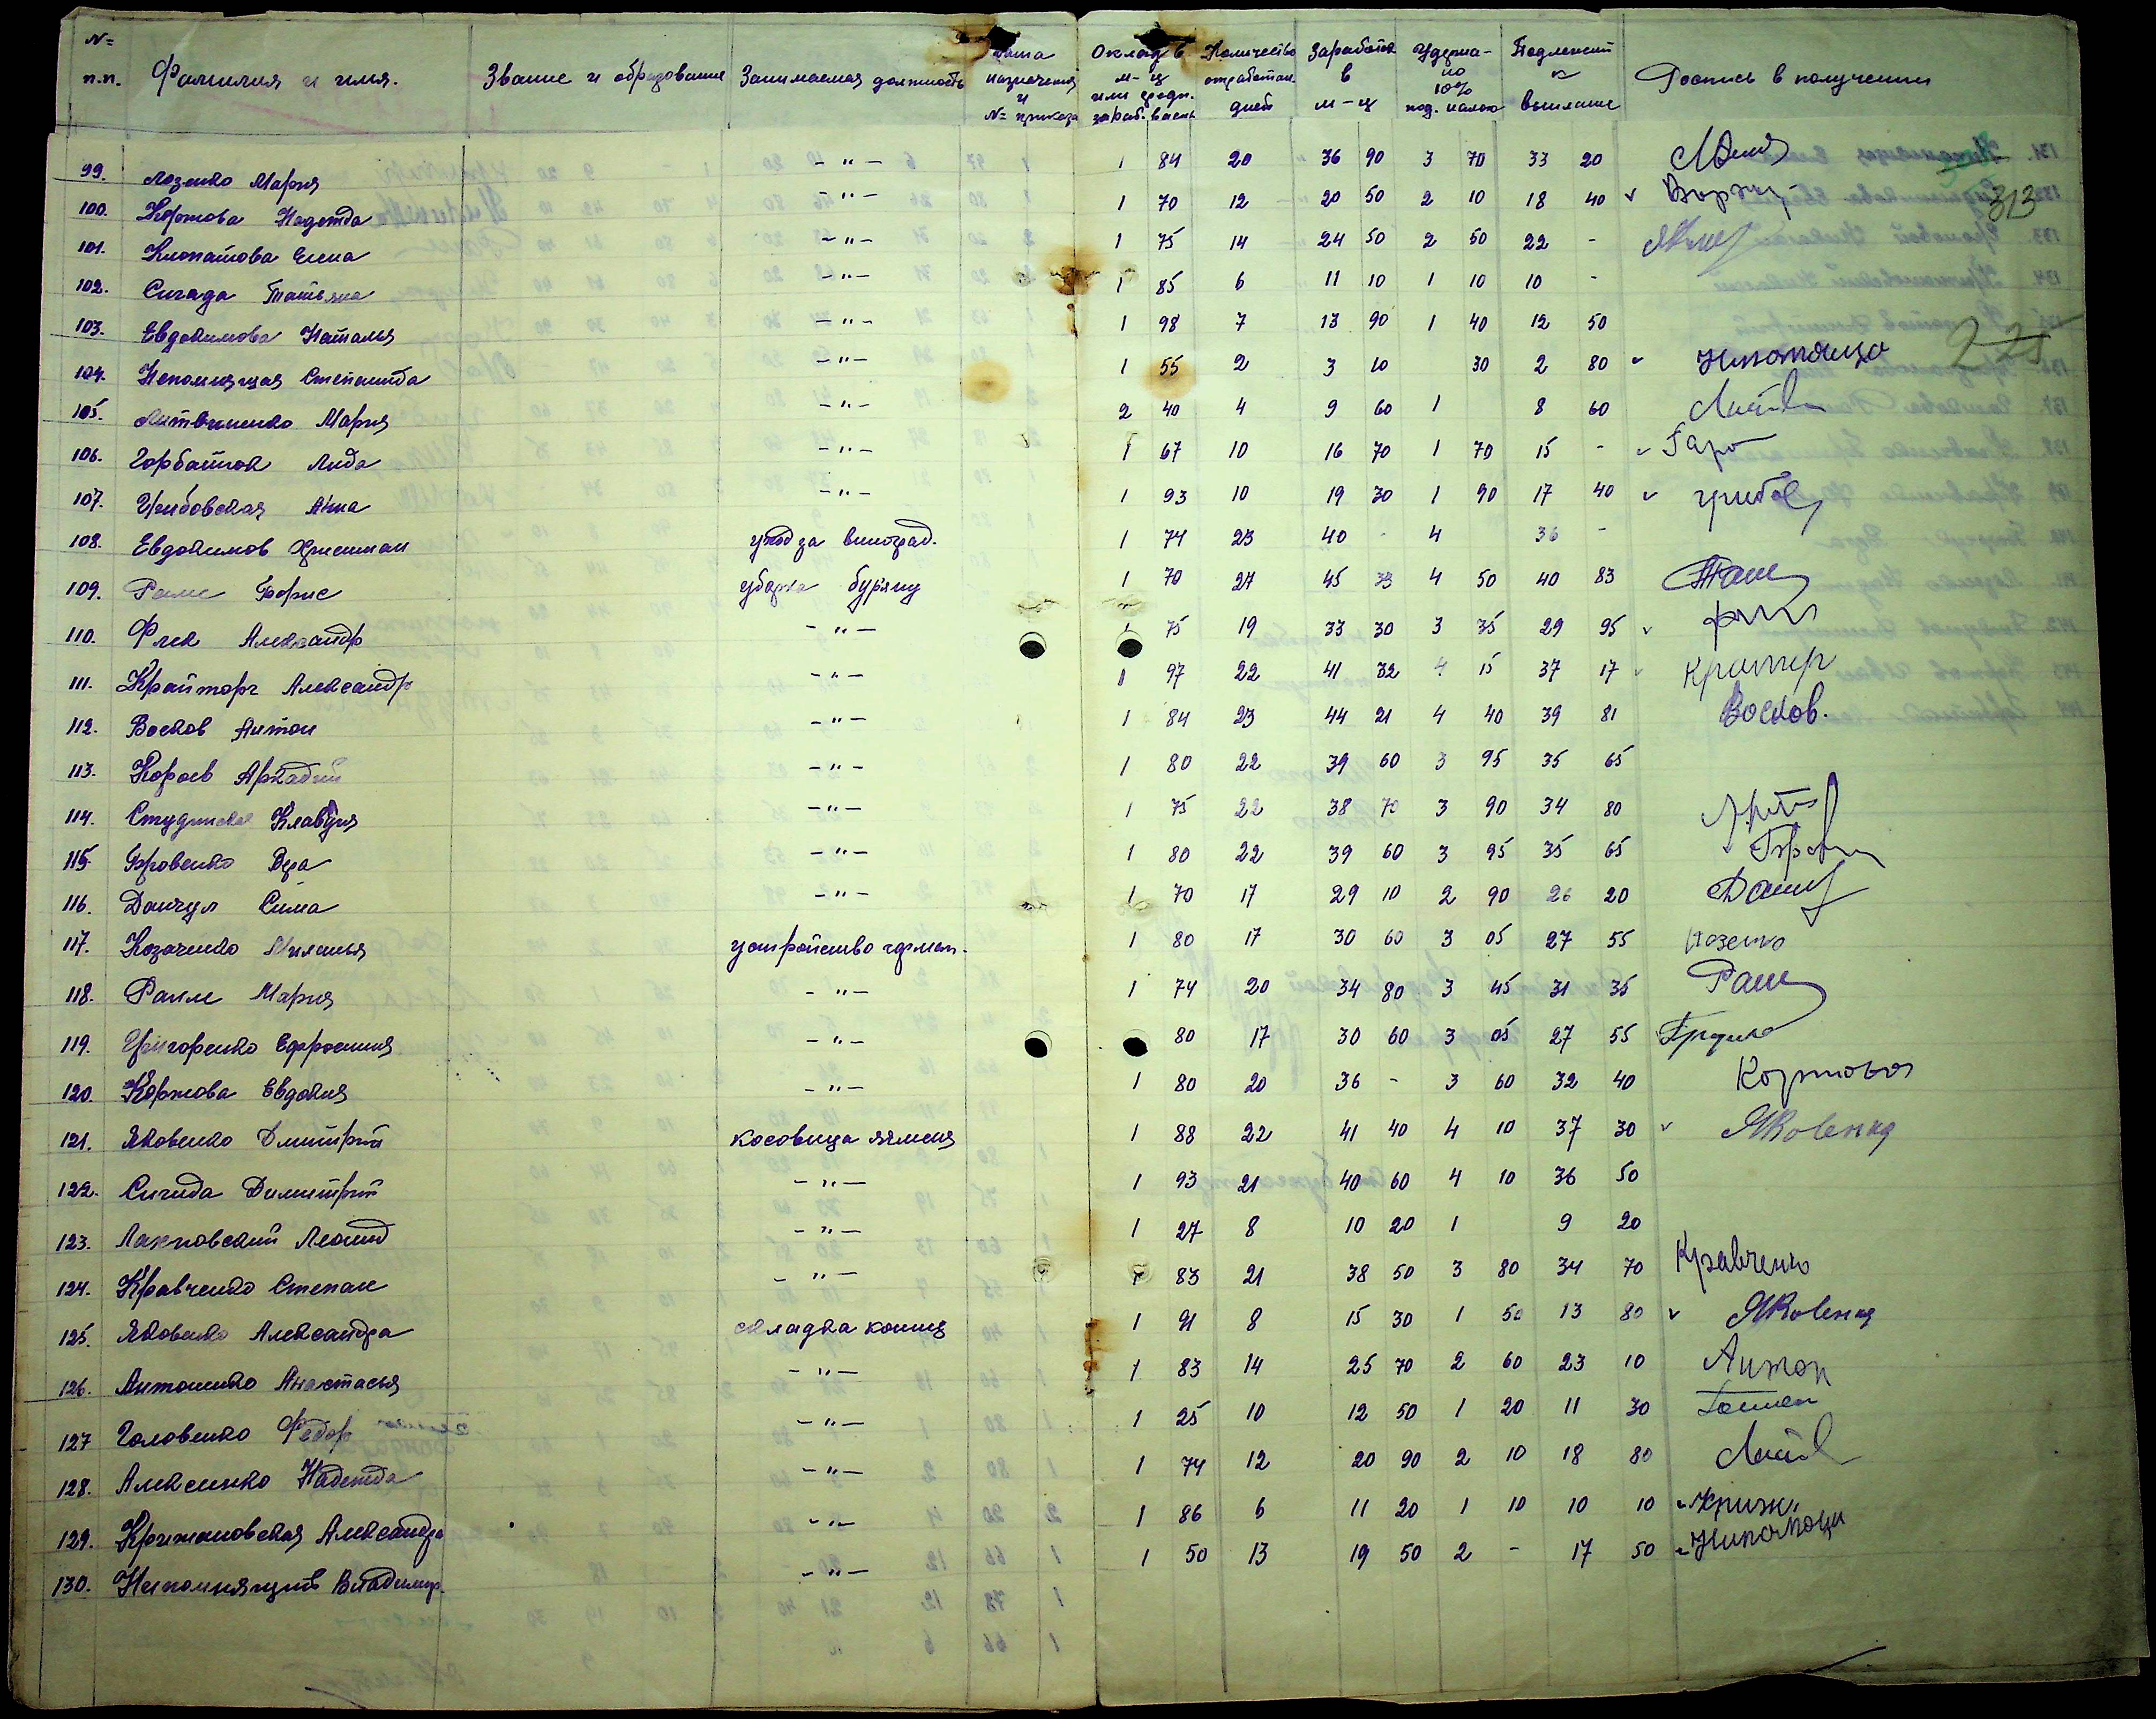 № п.п. Фамилия и имя. Звание и образование Занимаемая должность Дата назначения и № приказа Оклад в м-ц или средн. зараб. в день Количество отработан. дней Заработок в м-ц Удержано 10% под. налог Подлежит к выплате Роспись в получении
99. Лозенко Мария -"- 1 84 20 36 90 3 70 33 20
100. Коржова Надежда -"- 1 70 12 20 50 2 10 18 40 ✓
313
101. Клопатова Елена -"- 1 75 14 24 50 2 50 22 -
102. Сигада Татьяна -"- 1 85 6 11 10 1 10 10 -
103. Евдокимова Наталья -"- 1 98 7 13 90 1 40 12 50
225
104. Непомнящая Степанида -"- 1 55 2 3 10 30 2 80 ✓
105. Литвиненко Мария -"- 2 40 4 9 60 1 8 60
106. Горбатюк Лида -"- 1 67 10 16 70 1 70 15 - ✓ Гарб
107. Грибовская Анна -"- 1 93 10 19 30 1 90 17 40 ✓ гриб
108. Евдокимов уход за виноград. 1 74 23 40 - 4 36 -
109. Раше Борис уборка буряну 1 70 27 45 33 4 50 40 83
110. Флек Александр -"- 1 75 19 33 30 3 35 29 95 ✓
111. Крайторг Александр -"- 1 97 22 41 32 4 15 37 17 ✓
112. Восков Антон -"- 1 84 23 44 21 4 40 39 81 Восков.
113. Короев Аркадий -"- 1 80 22 39 60 3 95 35 65
114. Клавдия -"- 1 75 22 38 70 3 90 34 80
115 Бровенко Вера -"- 1 80 22 39 60 3 95 35 65
116. Данчул Сима -"- 1 70 17 29 10 2 90 26 20
117. Козаченко Миланья устройство 1 80 17 30 60 3 05 27 55
118. Раише Мария -"- 1 74 20 34 80 3 45 31 35 Раш
119. Григоренко Ефросиния -"- 80 17 30 60 3 05 27 55
120. Коржова Евдокия -"- 1 80 20 36 - 3 60 32 40 Коржова
121. Яковенко Дмитрий косовица ячменя 1 88 22 41 40 4 10 37 30 ✓ Яковенко
122. Сигида Димитрий -"- 1 93 21 40 60 4 10 36 50
123. Лахновский Леонид -"- 1 27 8 10 20 1 9 20
124. Кравченко Степан -"- 1 83 21 38 50 3 80 34 70 Кравченко
125. Яковенко Александра складка копиц 1 91 8 15 30 1 50 13 80 ✓ Яковенко
126. Антоненко Анастасья -"- 1 83 14 25 70 2 60 23 10 Антон
127 Головенко Федор -"- 1 25 10 12 50 1 20 11 30
128. Алексенко Надежда -"- 1 74 12 20 90 2 10 18 80
129. Крижановская Александра -"- 1 86 6 11 20 1 10 10 10 ✓ Криж.
130. Непомнящий Владимир. -"- 1 50 13 19 50 2 - 17 50 ✓